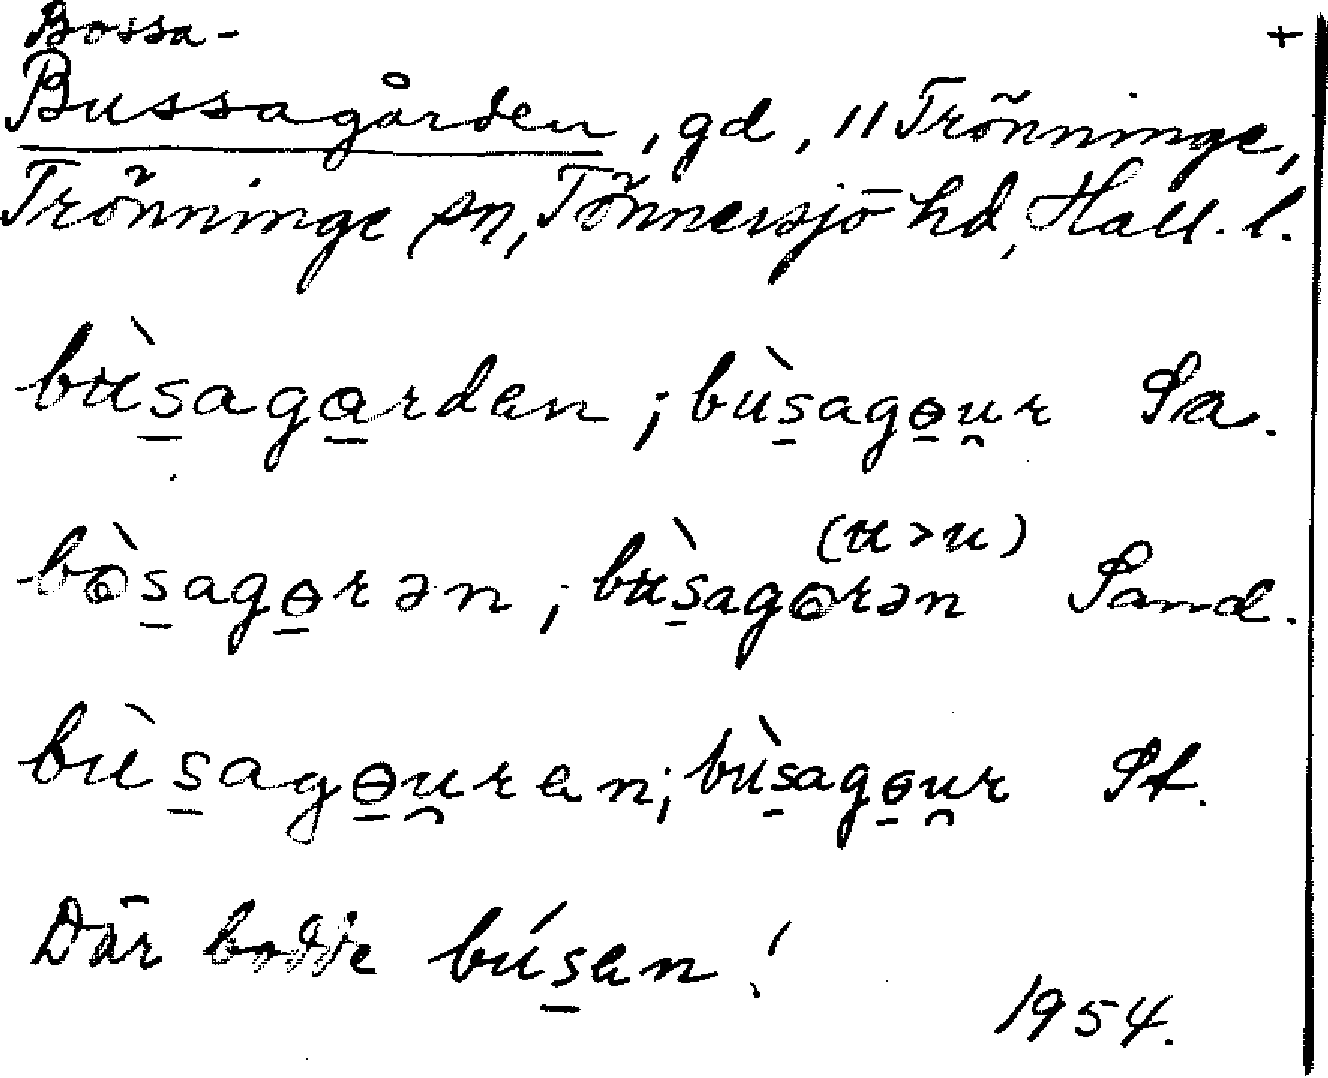 Bossa- +
Bussagården, gd, 11 Trönninge,
Trönninge sn, Tönnersjö hd, Hall. l.
bùs̠aga̠rdan; bùs̠agɵ̠u̯r Sa.
bòs̠agɵ̠rən; bùs̠agɵrən (u>u) Sand.
bùs̠agɵ̠u̯ran; bùs̠agɵ̠u̯r St.
Där bodde bús̠an!
1954.